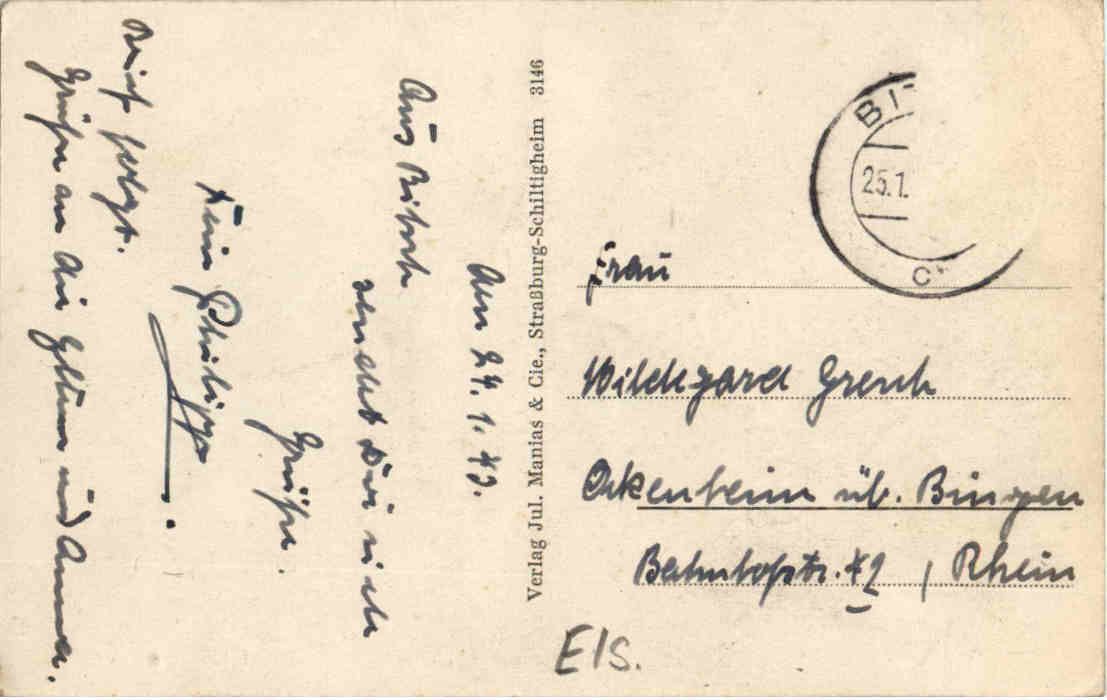 den 24. 1. 43.
Aus Bitsch
sendet Dir viele
Grüße.
Dein Philipp.
Brief folgt.
Grüße an die Eltern und Anna.
Verlag Jul. Manias & Cie., Straßburg-Schiltigheim 3146
BIT
25.1.
c
Frau
Hildegard Gresch
Ockenheim üb. Bingen
Bahnhofstr. 42 , Rhein
Els.